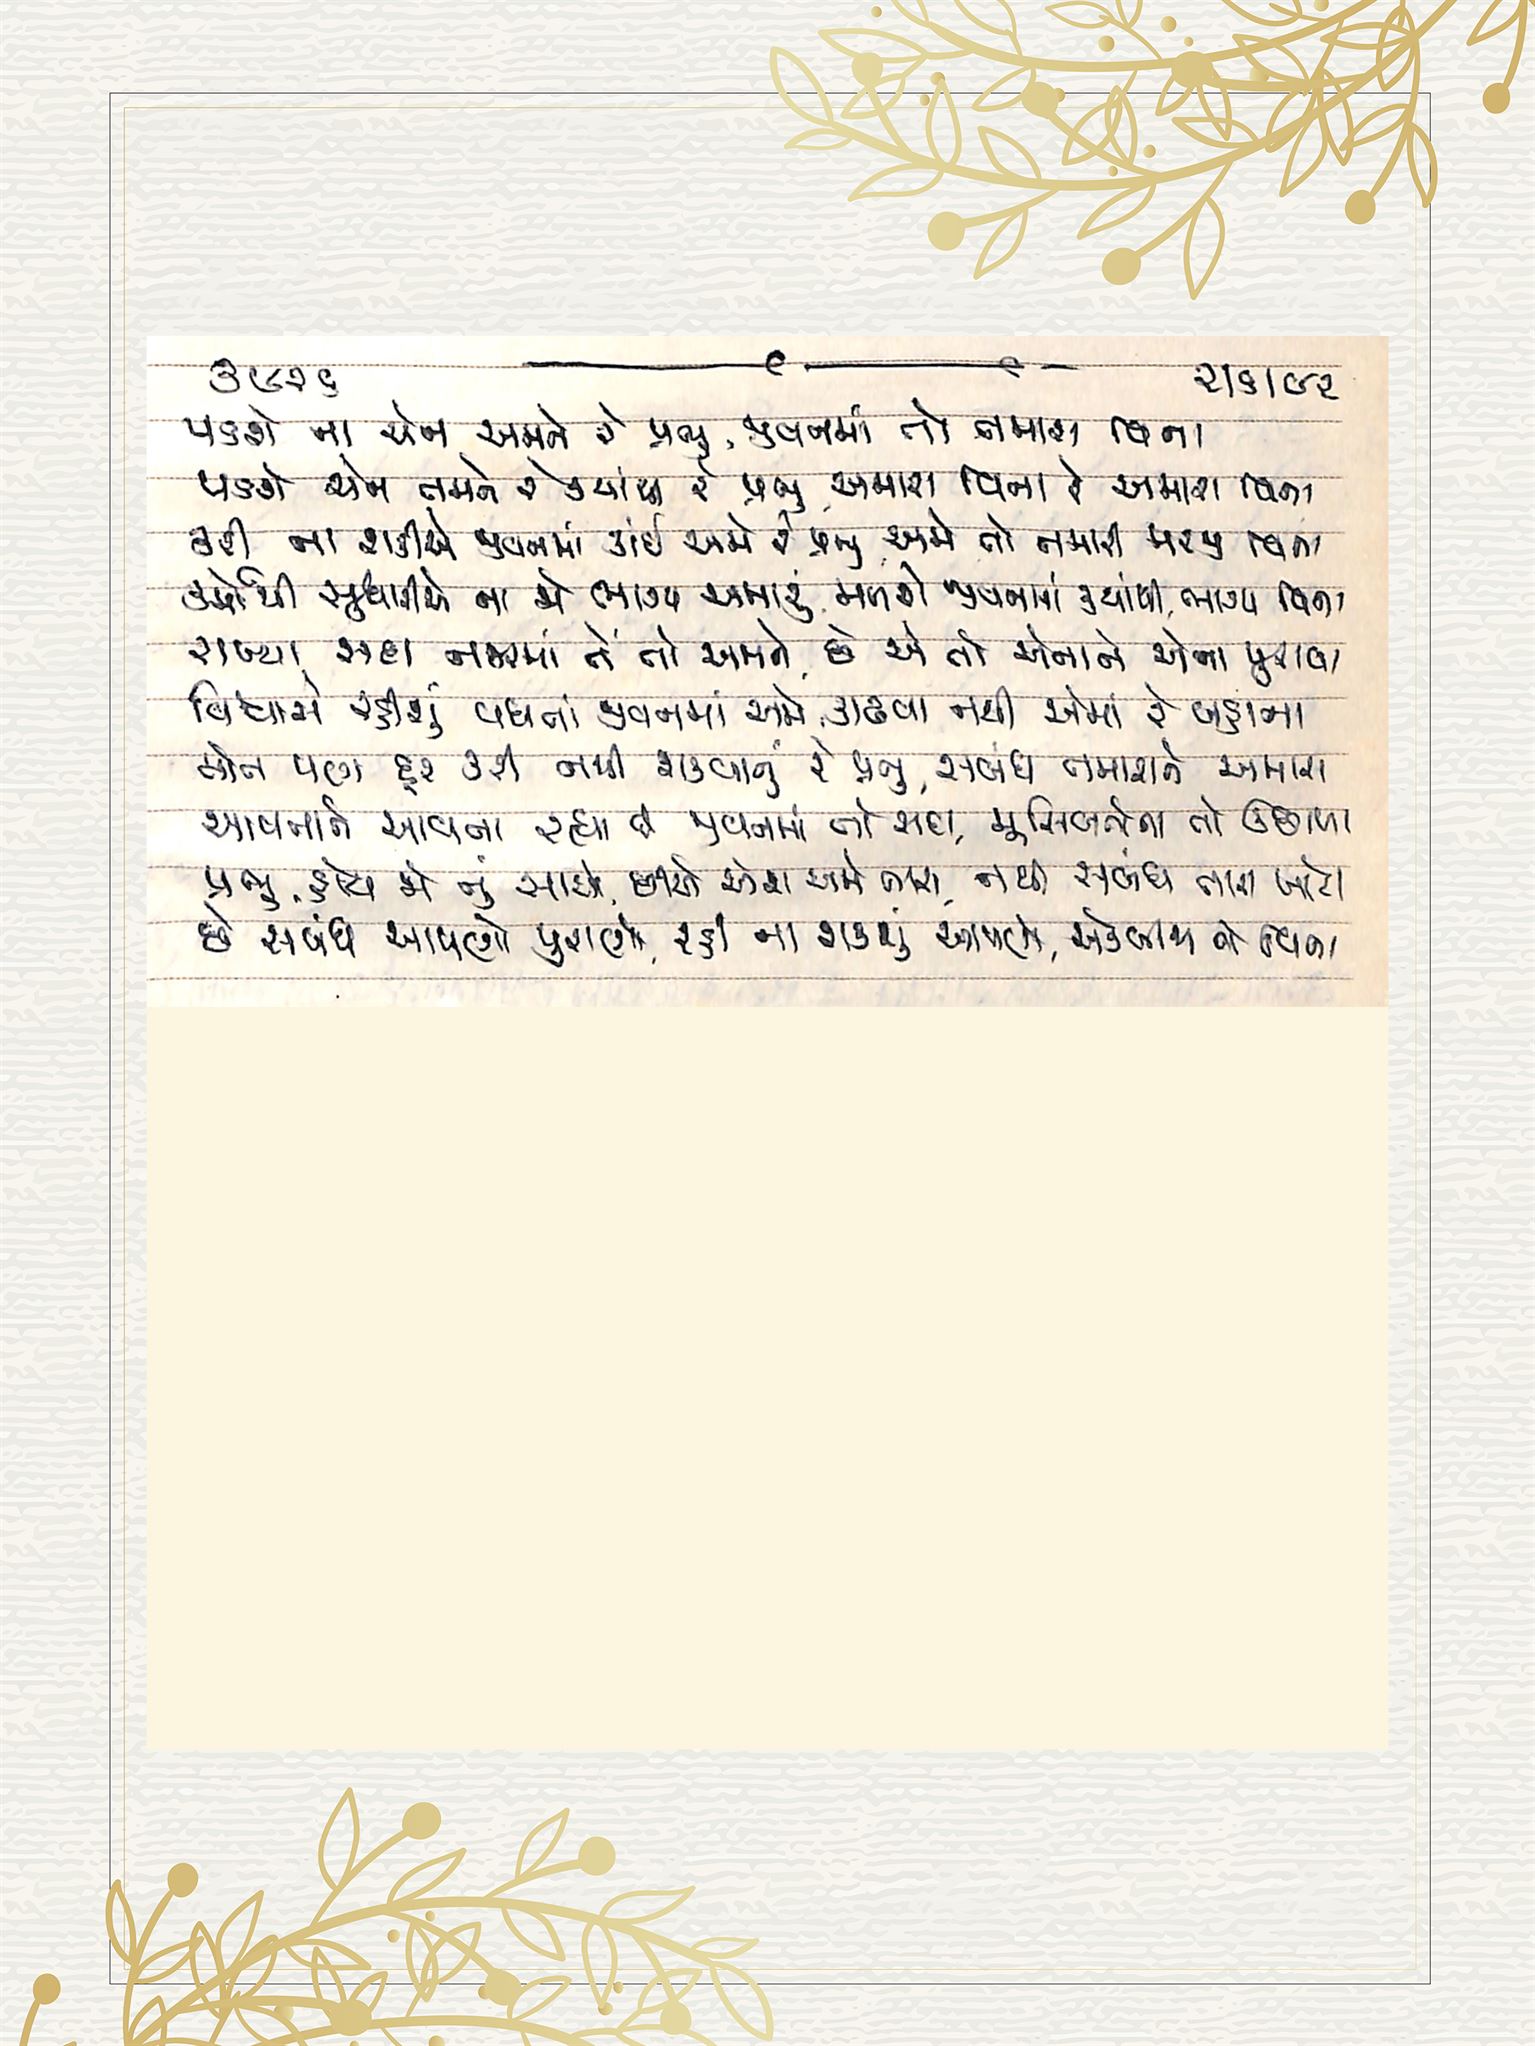 ૩૯૨૬ ૨/૬/૯૨
પડશે ના ચેન અમને રે પ્રભુ, જીવનમાં તો તમારા વિના
પડશે ચેન તમને રે ક્યાંથી રે પ્રભુ, અમારા વિના રે અમારા વિના
કરી ના શકીએ જીવનમાં કાંઈ અમે રે પ્રભુ, અમે તો તમારી મરજી વિના
કર્મોથી સુધારીએ ના જો ભાગ્ય અમારું, મળશે જીવનમાં ક્યાંથી, ભાગ્ય વિના
રાખ્યા સદા નજરમાં તેં તો અમને, છે એ તો એનાને એના પુરાવા
વિશ્વાસે રહીશું વધતાં જીવનમાં અમે, કાઢવા નથી એમાં રે બહાના
મોત પણ દૂર કરી નથી શકવાનું રે પ્રભુ, સબંધ તમારાને અમારા
આવતાને આવતા રહ્યા છે જીવનમાં તો સદા, મુસિબતોના તો ઉછાળા
પ્રભુ, હોય જો તું સાથે, છીએ એવા અમે તારા, નથી સબંધ તારા ખોટા
છે સબંધ આપણો પુરાણો, રહી ના શકશું આપણે, એકબીજા વિના